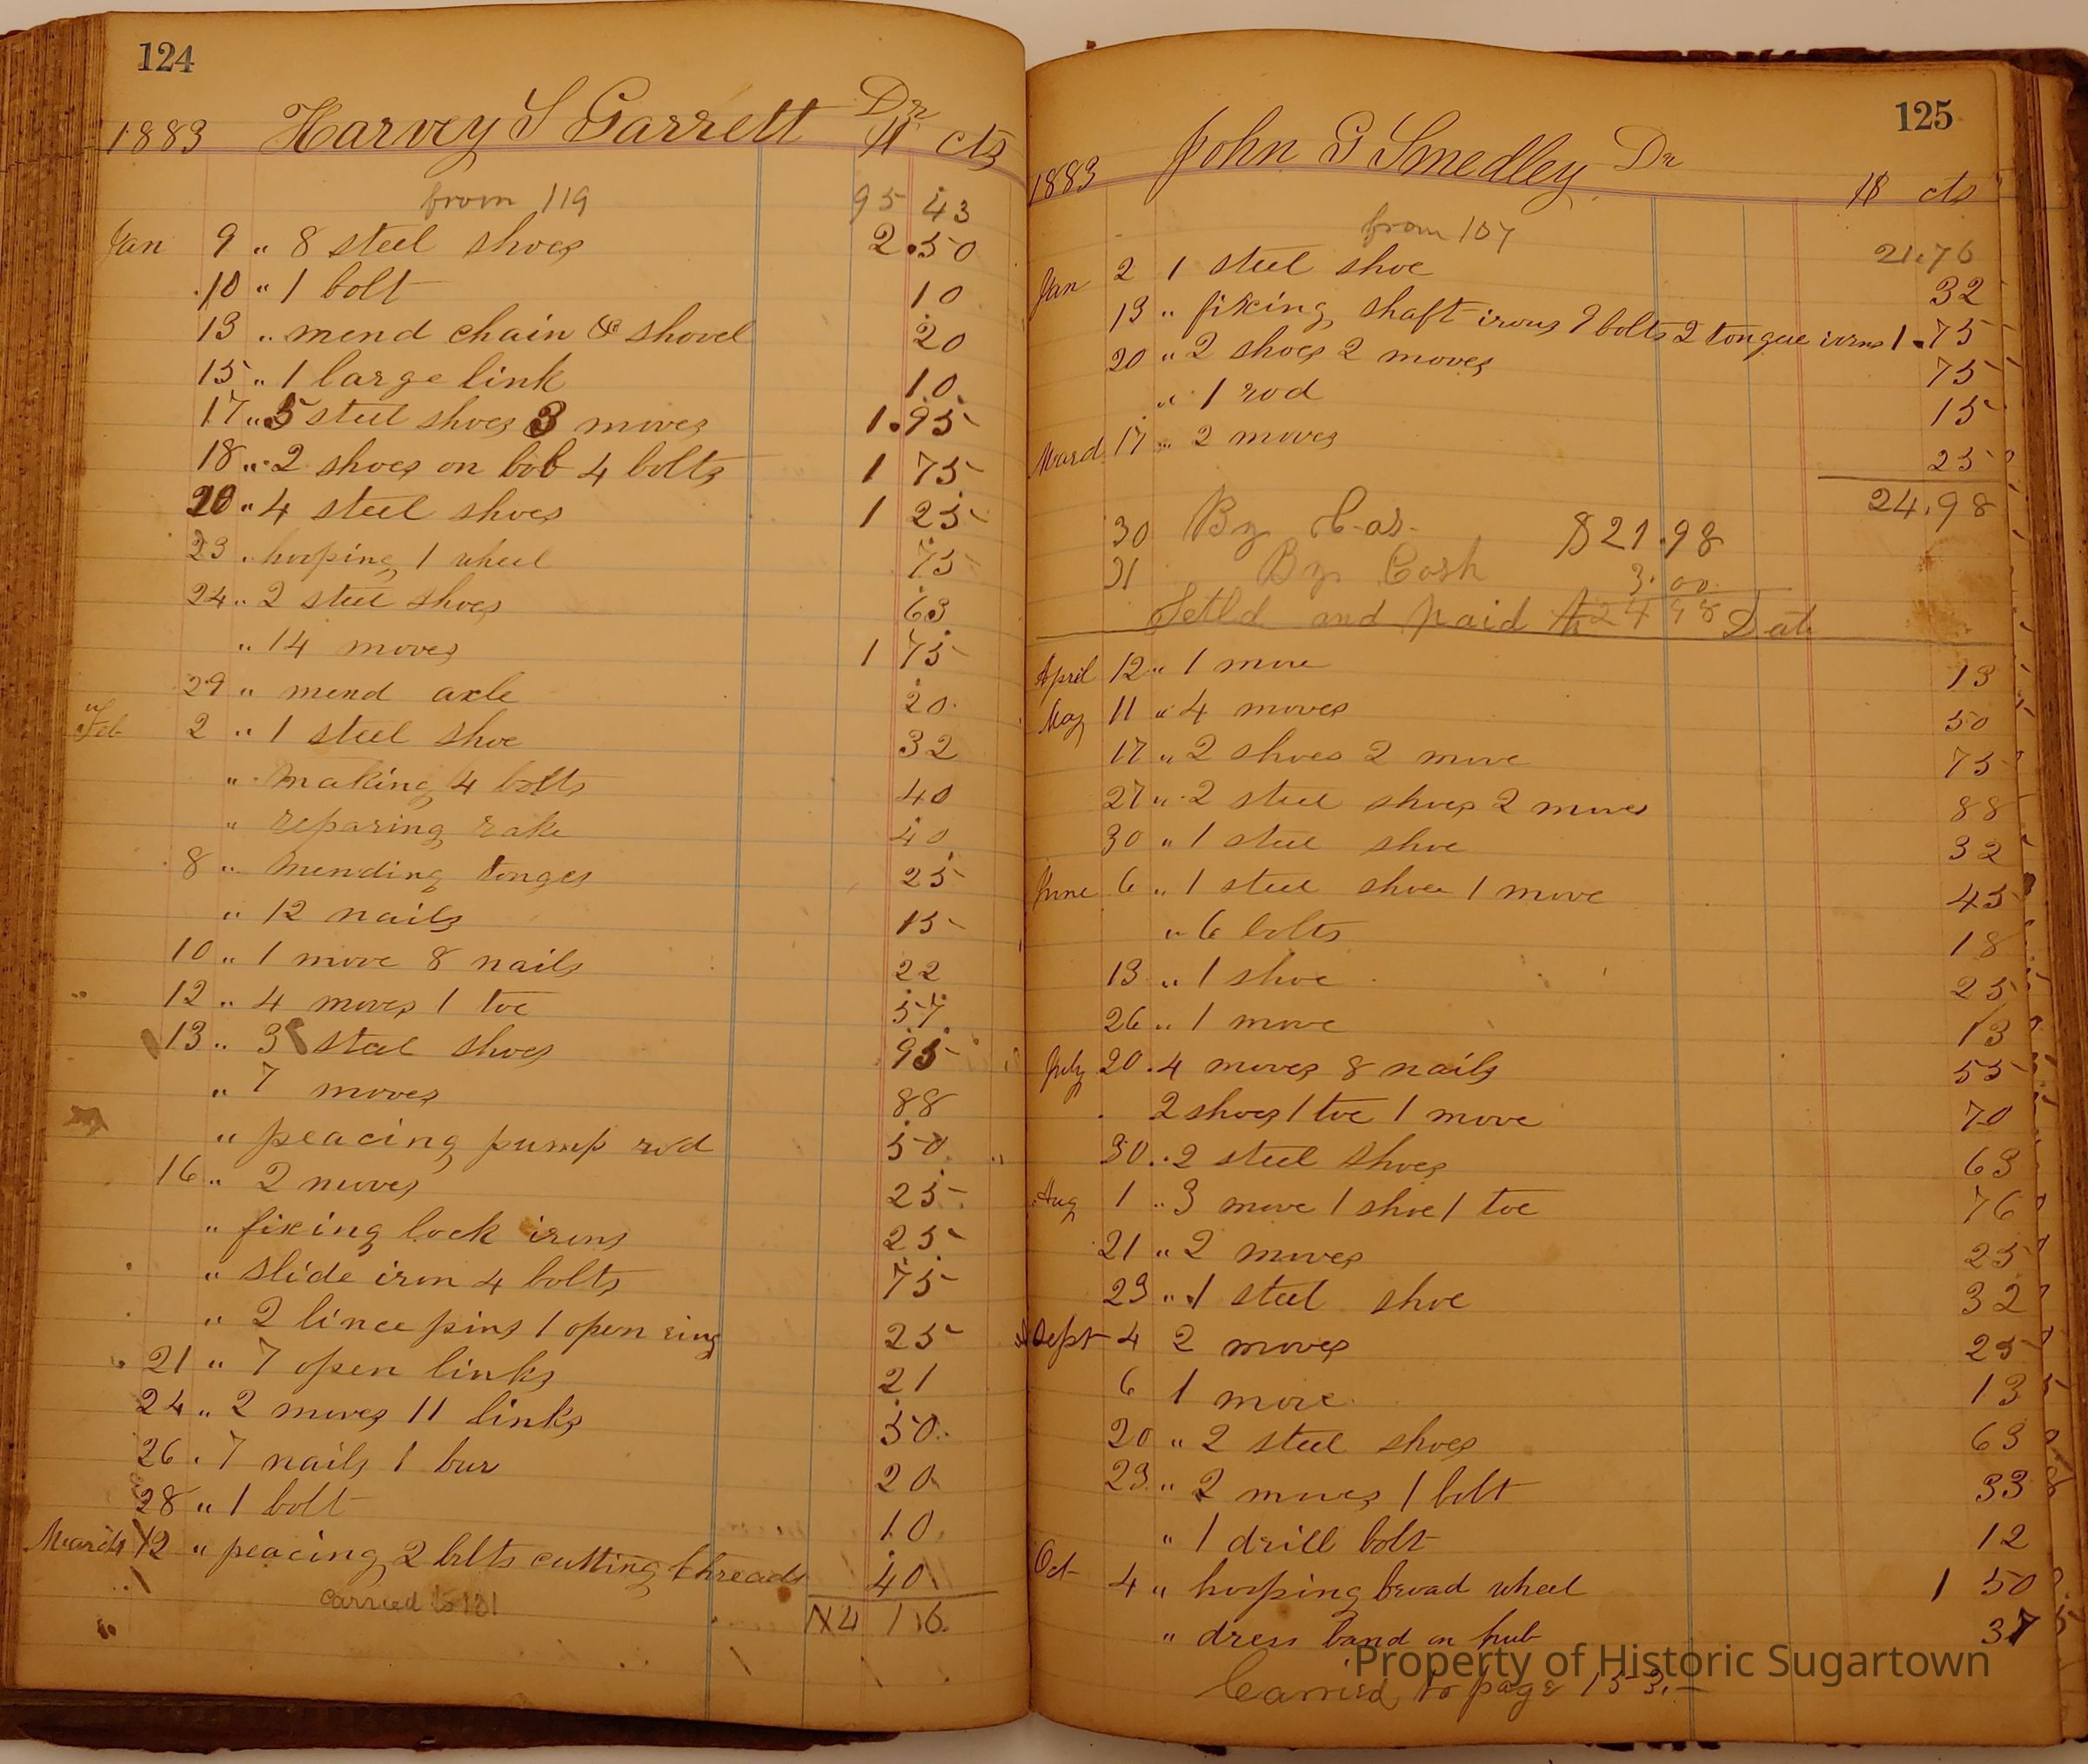 124
1883 Harvey S Garrett Dr
$ cts
from 119 95 43
Jan 9 " 8 steel shoes 2.50
10 " 1 bolt 10
13 " mend chain & shovel 20
15 " 1 large link 10
17 " 5 steel shoes 3 moves 1.95
18 " 2 shoes on bob 4 bolts 1 75
20 " 4 steel shoes 1 25
23 " hooping 1 wheel 75
24 " 2 steel shoes 63
" 14 moves 1 75
29 " mend axle 20
Feb 2 " 1 steel shoe 32
" making 4 bolts 40
" reparing rake 40
8 " mending tonges 25
" 12 nails 15
10 " 1 move 8 nails 22
12 " 4 moves 1 toe 57
13 " 3 steel shoes 95
" 7 moves 88
" peacing pump rod 50
16 " 2 moves 25
" fixing lock irons 25
" slide iron 4 bolts 75
" 2 lince pins 1 open ring 25
21 " 7 open links 21
24 " 2 moves 11 links 50
26 " 7 nails 1 bur 20
28 " 1 bolt 10
March 12 " peacing 2 bolts cutting threads 40
carried to 131 114 16
125
1883 John G Smedley Dr
$ cts
from 107 21.76
Jan 2 1 steel shoe 32
13 " fixing shaft irons 9 bolts 2 tongue irons 1.75
20 " 2 shoes 2 moves 75
" 1 rod 15
March 17 " 2 moves 25
24.98
30 By Cas $21.98
31 By Cash 3.00
Setld and paid 24 98 Dat
April 12 " 1 move 13
May 11 " 4 moves 50
17 " 2 shoes 2 move 75
27 " 2 steel shoes 2 moves 88
30 " 1 steel shoe 32
June 6 " 1 steel shoe 1 move 45
" 6 bolts 18
13 " 1 shoe 25
26 " 1 move 13
July 20 " 4 moves 8 nails 55
2 shoes 1 toe 1 move 70
30 " 2 steel shoes 63
Aug 1 " 3 move 1 shoe 1 toe 76
21 " 2 moves 25
23 " 1 steel shoe 32
Sept 4 2 moves 25
6 1 move 13
20 " 2 steel shoes 63
23 " 2 moves 1 bolt 33
" 1 drill bolt 12
Oct 4 " hooping broad wheel 1 50
" dress band on hub 37
Property of Historic Sugartown
Carried to page 153